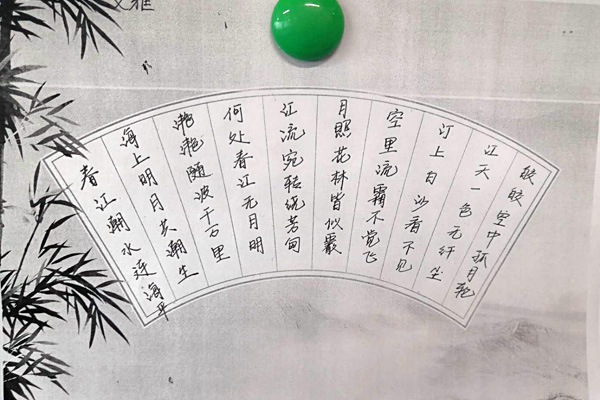 春江潮水连海平
海上明月共潮生
滟滟随波千万里
何处春江无月明
江流宛转绕芳甸
月照花林皆似霰
空里流霜不觉飞
汀上白沙看不见
江天一色无纤尘
皎皎空中孤月轮